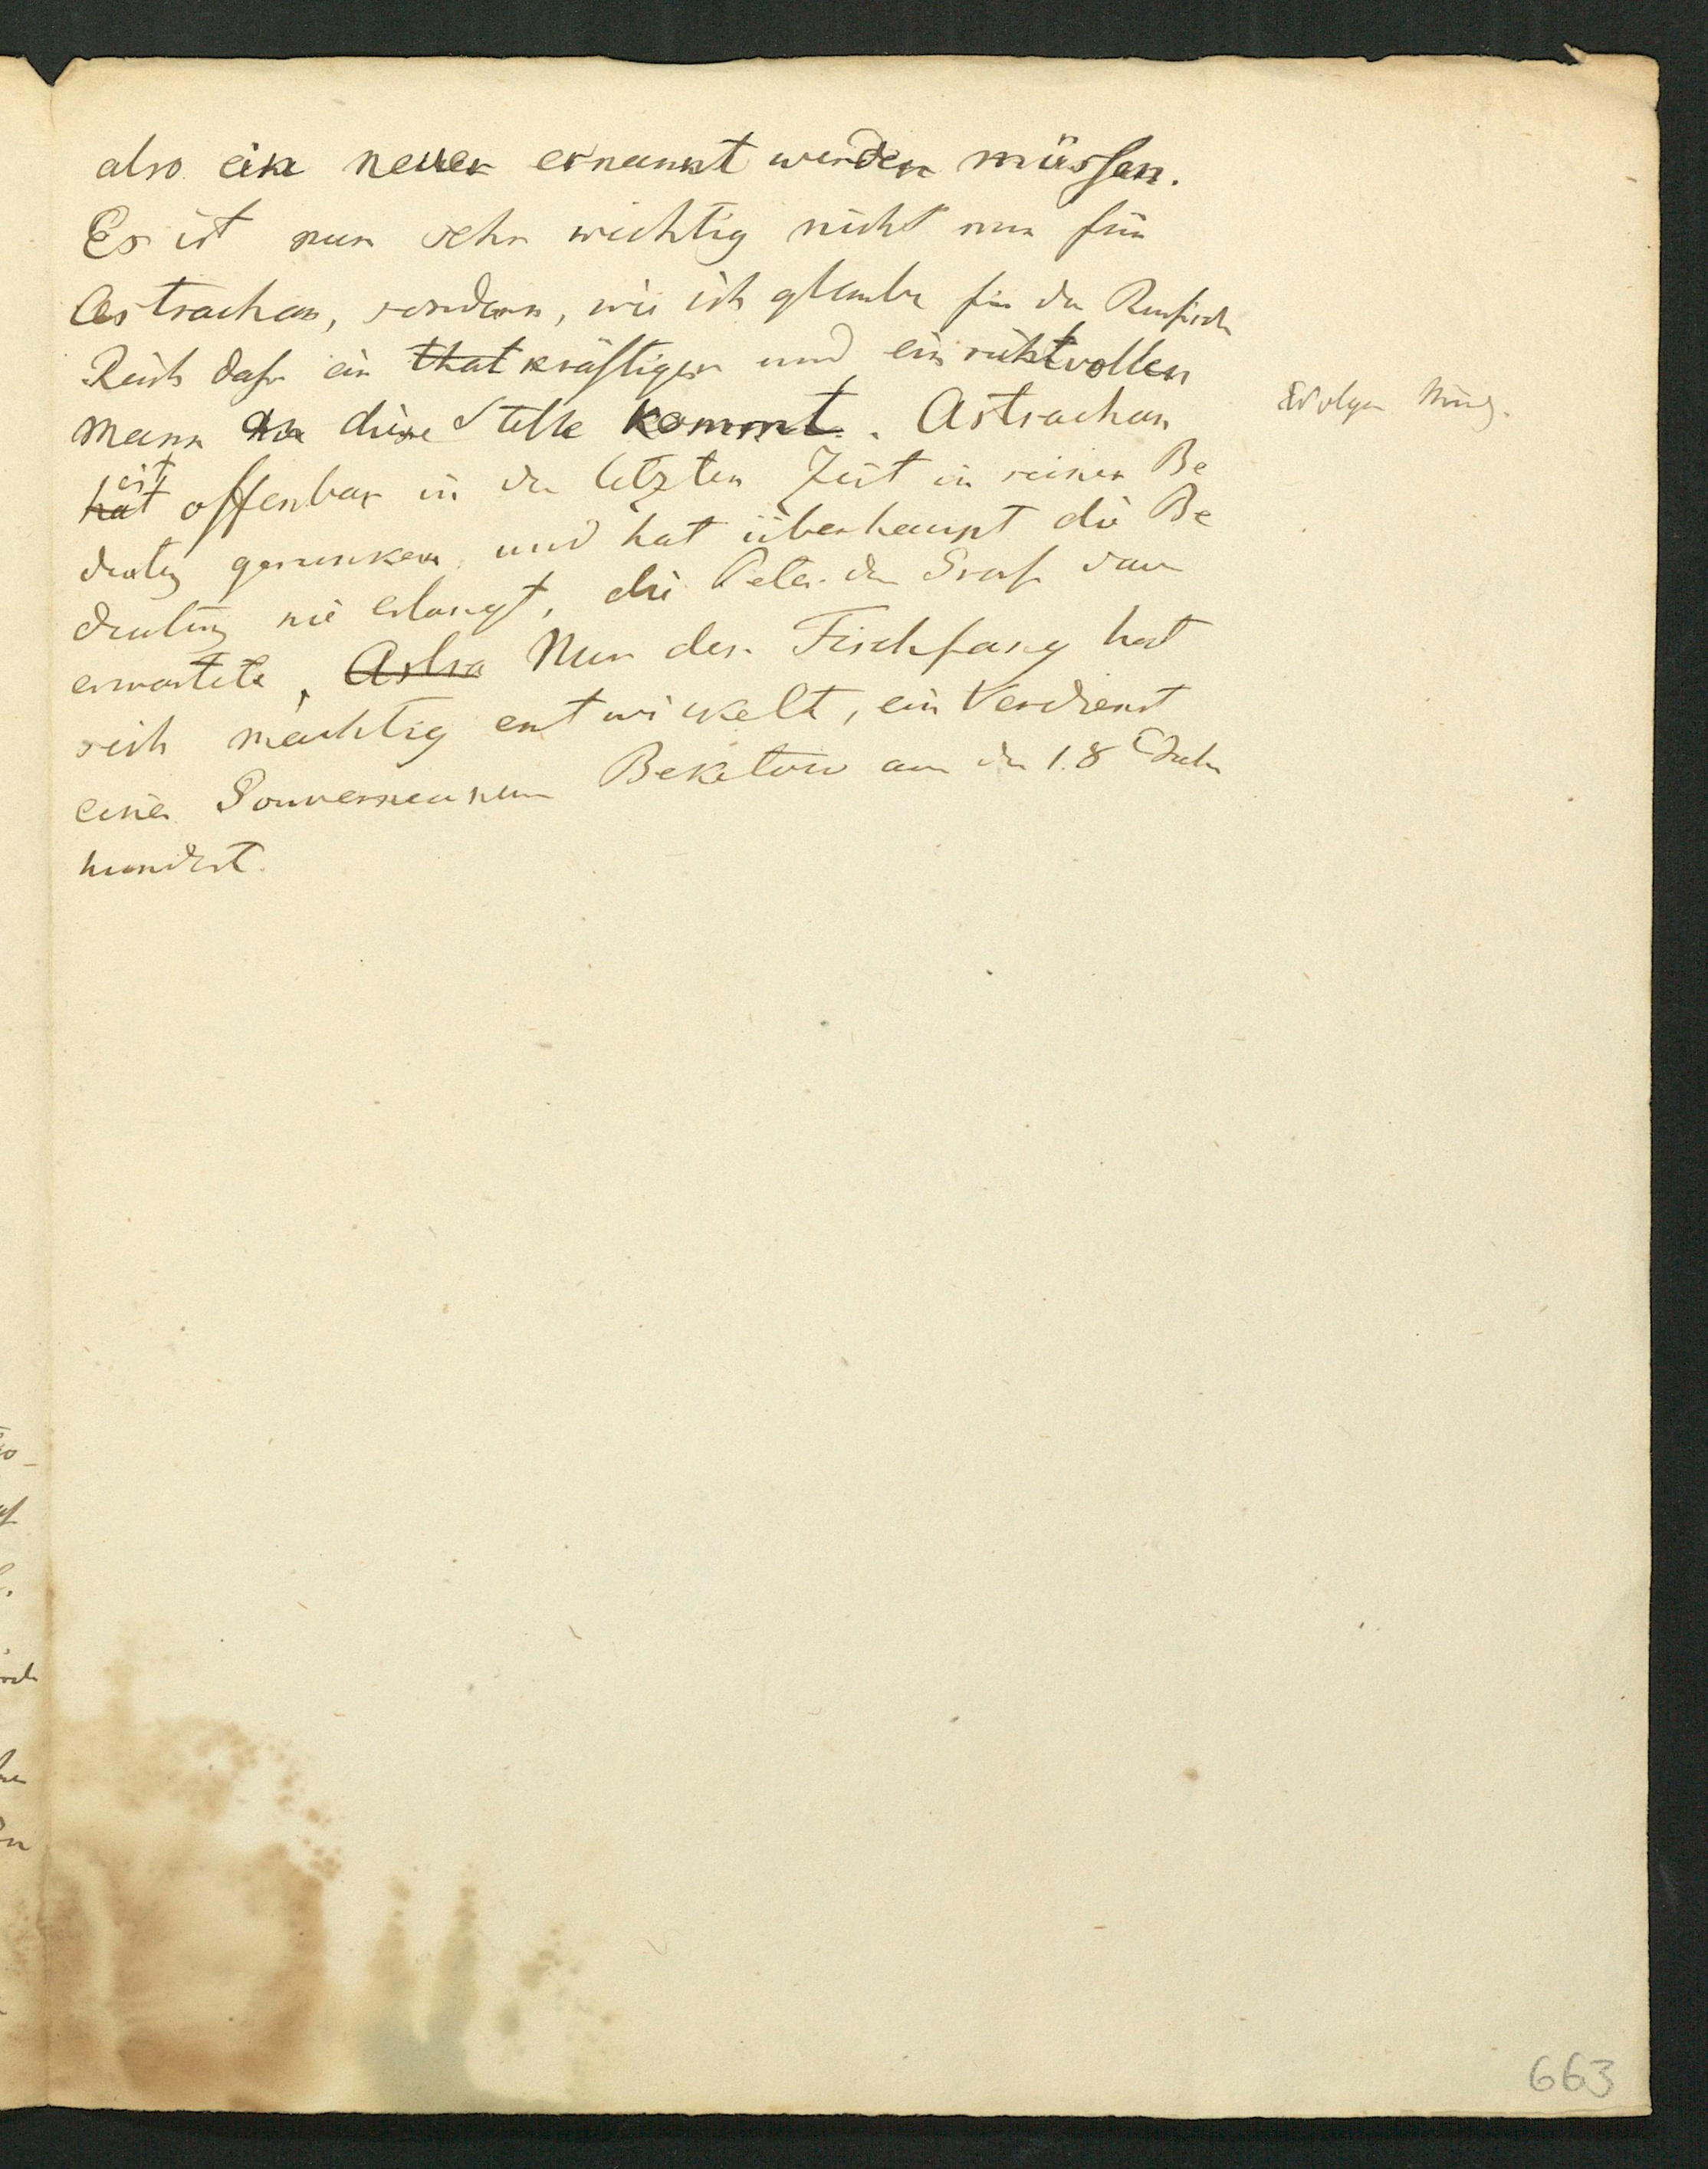 also ein neuer ernannt werden müssen.
Es ist nun sehr wichtig nicht nur für
Astrachan, sondern, wie ich glaube für das Russische
Reich dass ein thatkräftiger und einsichtvoller
Mann an diese Stelle kommt. Astrachan
hat ist offenbar in der letzten Zeit in seiner Be
deutung gesunken und hat überhaupt die Be
deutung nie erlangt, die Peter der Große davon
erwartete. Astra Nur der Fischfang hat
sich mächtig entwickelt, ein Verdienst
eines Gouverneurs Beketow aus dem 18 Jahr
hundert.
663